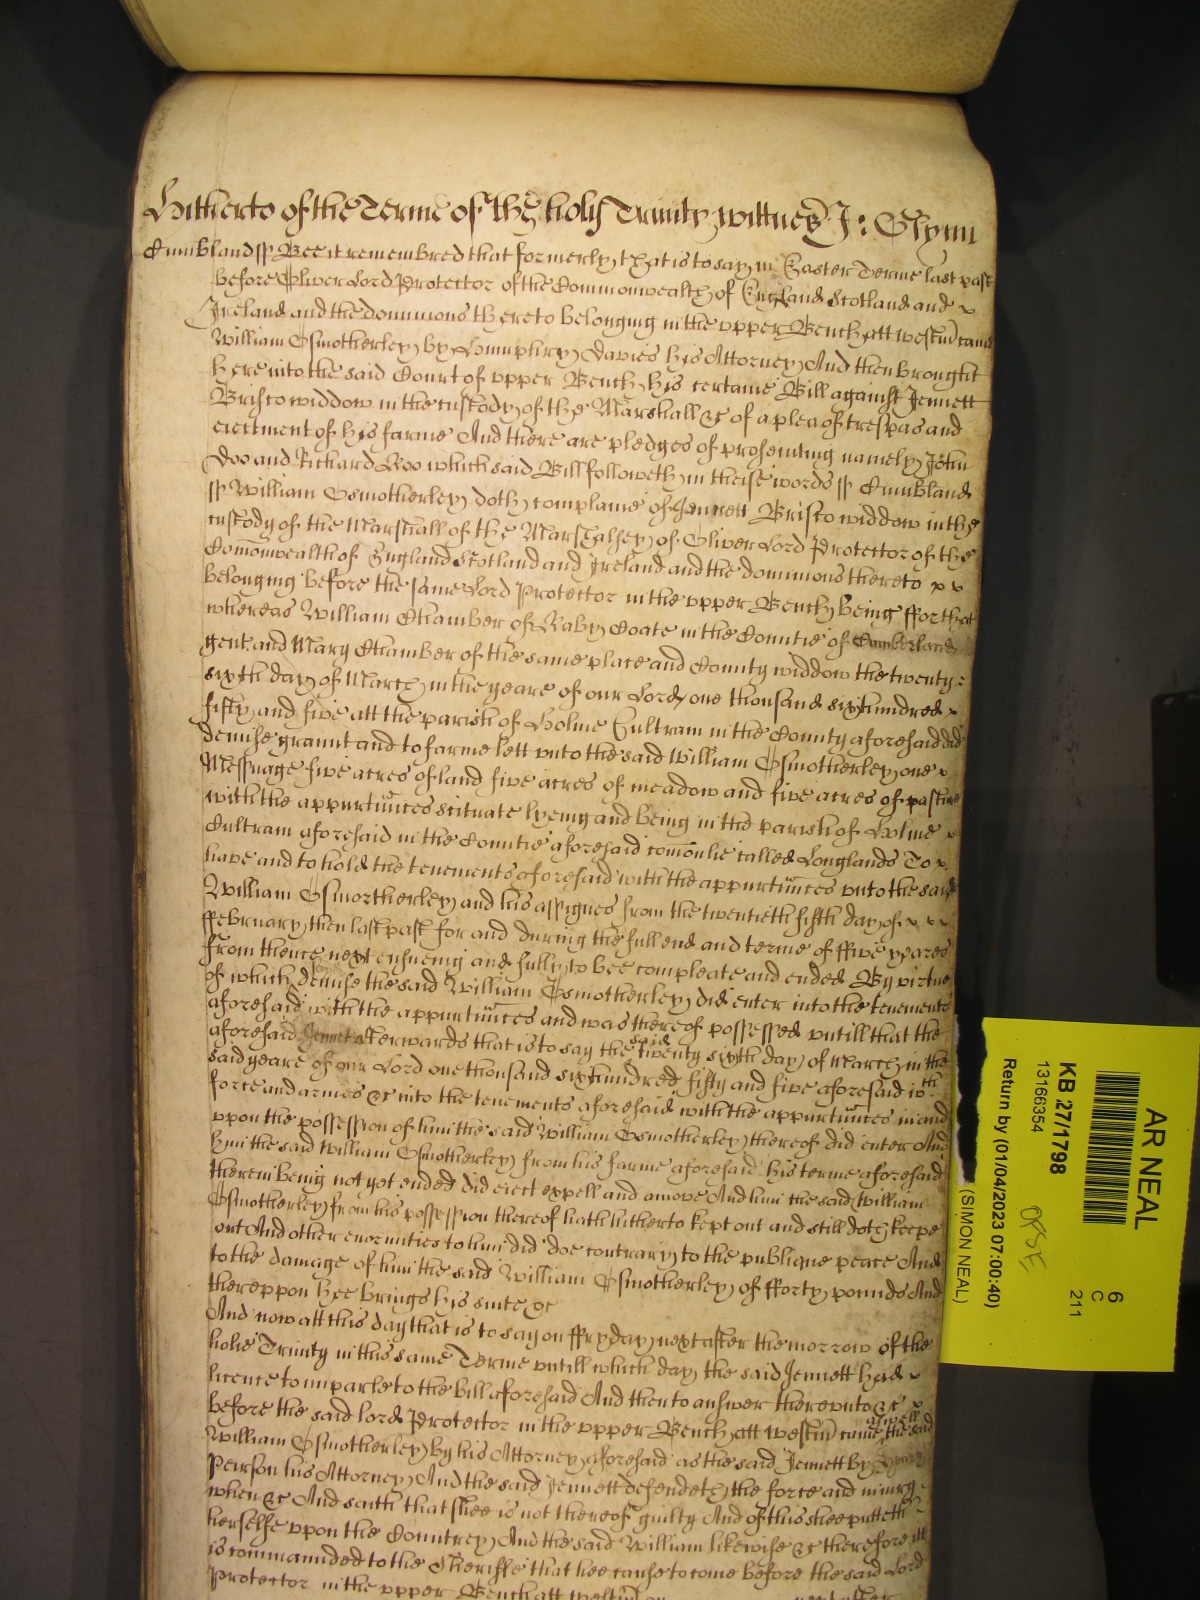 Hitherto of the Terme of the holy Trinity wittnes J: Glynn
Cumbland ss Bee it remembred that formerly that is to say in Easter Terme last past
before Oliver Lord Protector of the Commonwealth of England Scotland and x
Ireland and the dominions thereto belonging in the upper Bench att westm came
William Osmotherley by Humphry Davies his Attorney And then brought
here into the said Court of upper Bench his certaine Bill against Jennett
Brisco widdow in the custody of the Marshall &c of a plea of trespas and
eiectment of his farme And there are pledges of prosecuting namely John
Doo and Richard Roo which said Bill followeth in theise words ss Cumbland
ss William Osmotherley doth complaine of Jennett Brisco widdow in the
custody of the Marshall of the Marshalsey of Oliver Lord Protector of the
Comonwealth of England Scotland and Ireland and the dominions thereto x x
belonging before the same Lord Protector in the upper Bench being ffor that
whereas William Chamber of Raby Coate in the Countie of Cumberland
gent and Mary Chamber of the same place and County widdow the twenty
sixth day of March in the yeare of our Lord one thousand sixhundred x
fifty and five att the parish of Holme Cultram in the County aforesaid did
demise graunt and to farme lett unto the said William Osmotherley one x
Messuage five acres of land five acres of meadow and five acres of pasture
with the appurtunces scituate lyeing and being in the parish of Holme x
Cultram aforesaid in the Countie aforesaid comonlie called Longlands To x
have and to hold the tenements aforesaid with the appurtunces unto the said
William Osmortherley and his assignes from the twentieth fifth day of x x x
ffebruary then last past for and during the full end and terme of ffive yeares
from thence next ensueing and fully to bee compleate and ended By virtue
of which demise the said William Osmotherley did enter into the tenements
aforesaid with the appurtunces and was thereof possessed untill that the
aforesaid Jennet afterwards that is to say the said twenty sixth day of March in the
said yeare of our Lord one thousand sixhundred fifty and five aforesaid wth
force and armes &c into the tenements aforesaid with the appurtunces in and
upon the possession of him the said William Osmotherley thereof did enter And
him the said William Osmotherley from his farme aforesaid his terme aforesaid
therein being not yet ended did eiect expell and amove And him the said William
Osmotherley from his possession thereof hath hitherto kept out and still doth keepe
out And other enormities to him did doe contrary to the publique peace And
to the damage of him the said William Osmotherley of fforty pounds And
thereppon hee brings his suite &c
And now att this day that is to say on ffryday next after the morrow of the
holie Trinity in this same Terme untill which day the said Jennett had x
licence to imparle to the bill aforesaid And then to answer thereunto &c x
before the said lord Protector in the upper Bench att westm came aswell the said
William Osmotherley by his Attorney aforesaid as the said Jennett by
Peirson his Attorney And the said Jennett defendeth the force and iniury
when &c And saith that shee is not thereof guilty And of this shee putteth
herselfe upon the Countrey And the said William likewise &c therefore itt
is commaunded to the Sheriffe that hee cause to come before the said Lord
Protector in the upper Bench att westm on next after
AR NEAL
6
C
211
KB 27/1798
13166354
Return by (01/04/2023 07:00:40)
(SIMON NEAL)